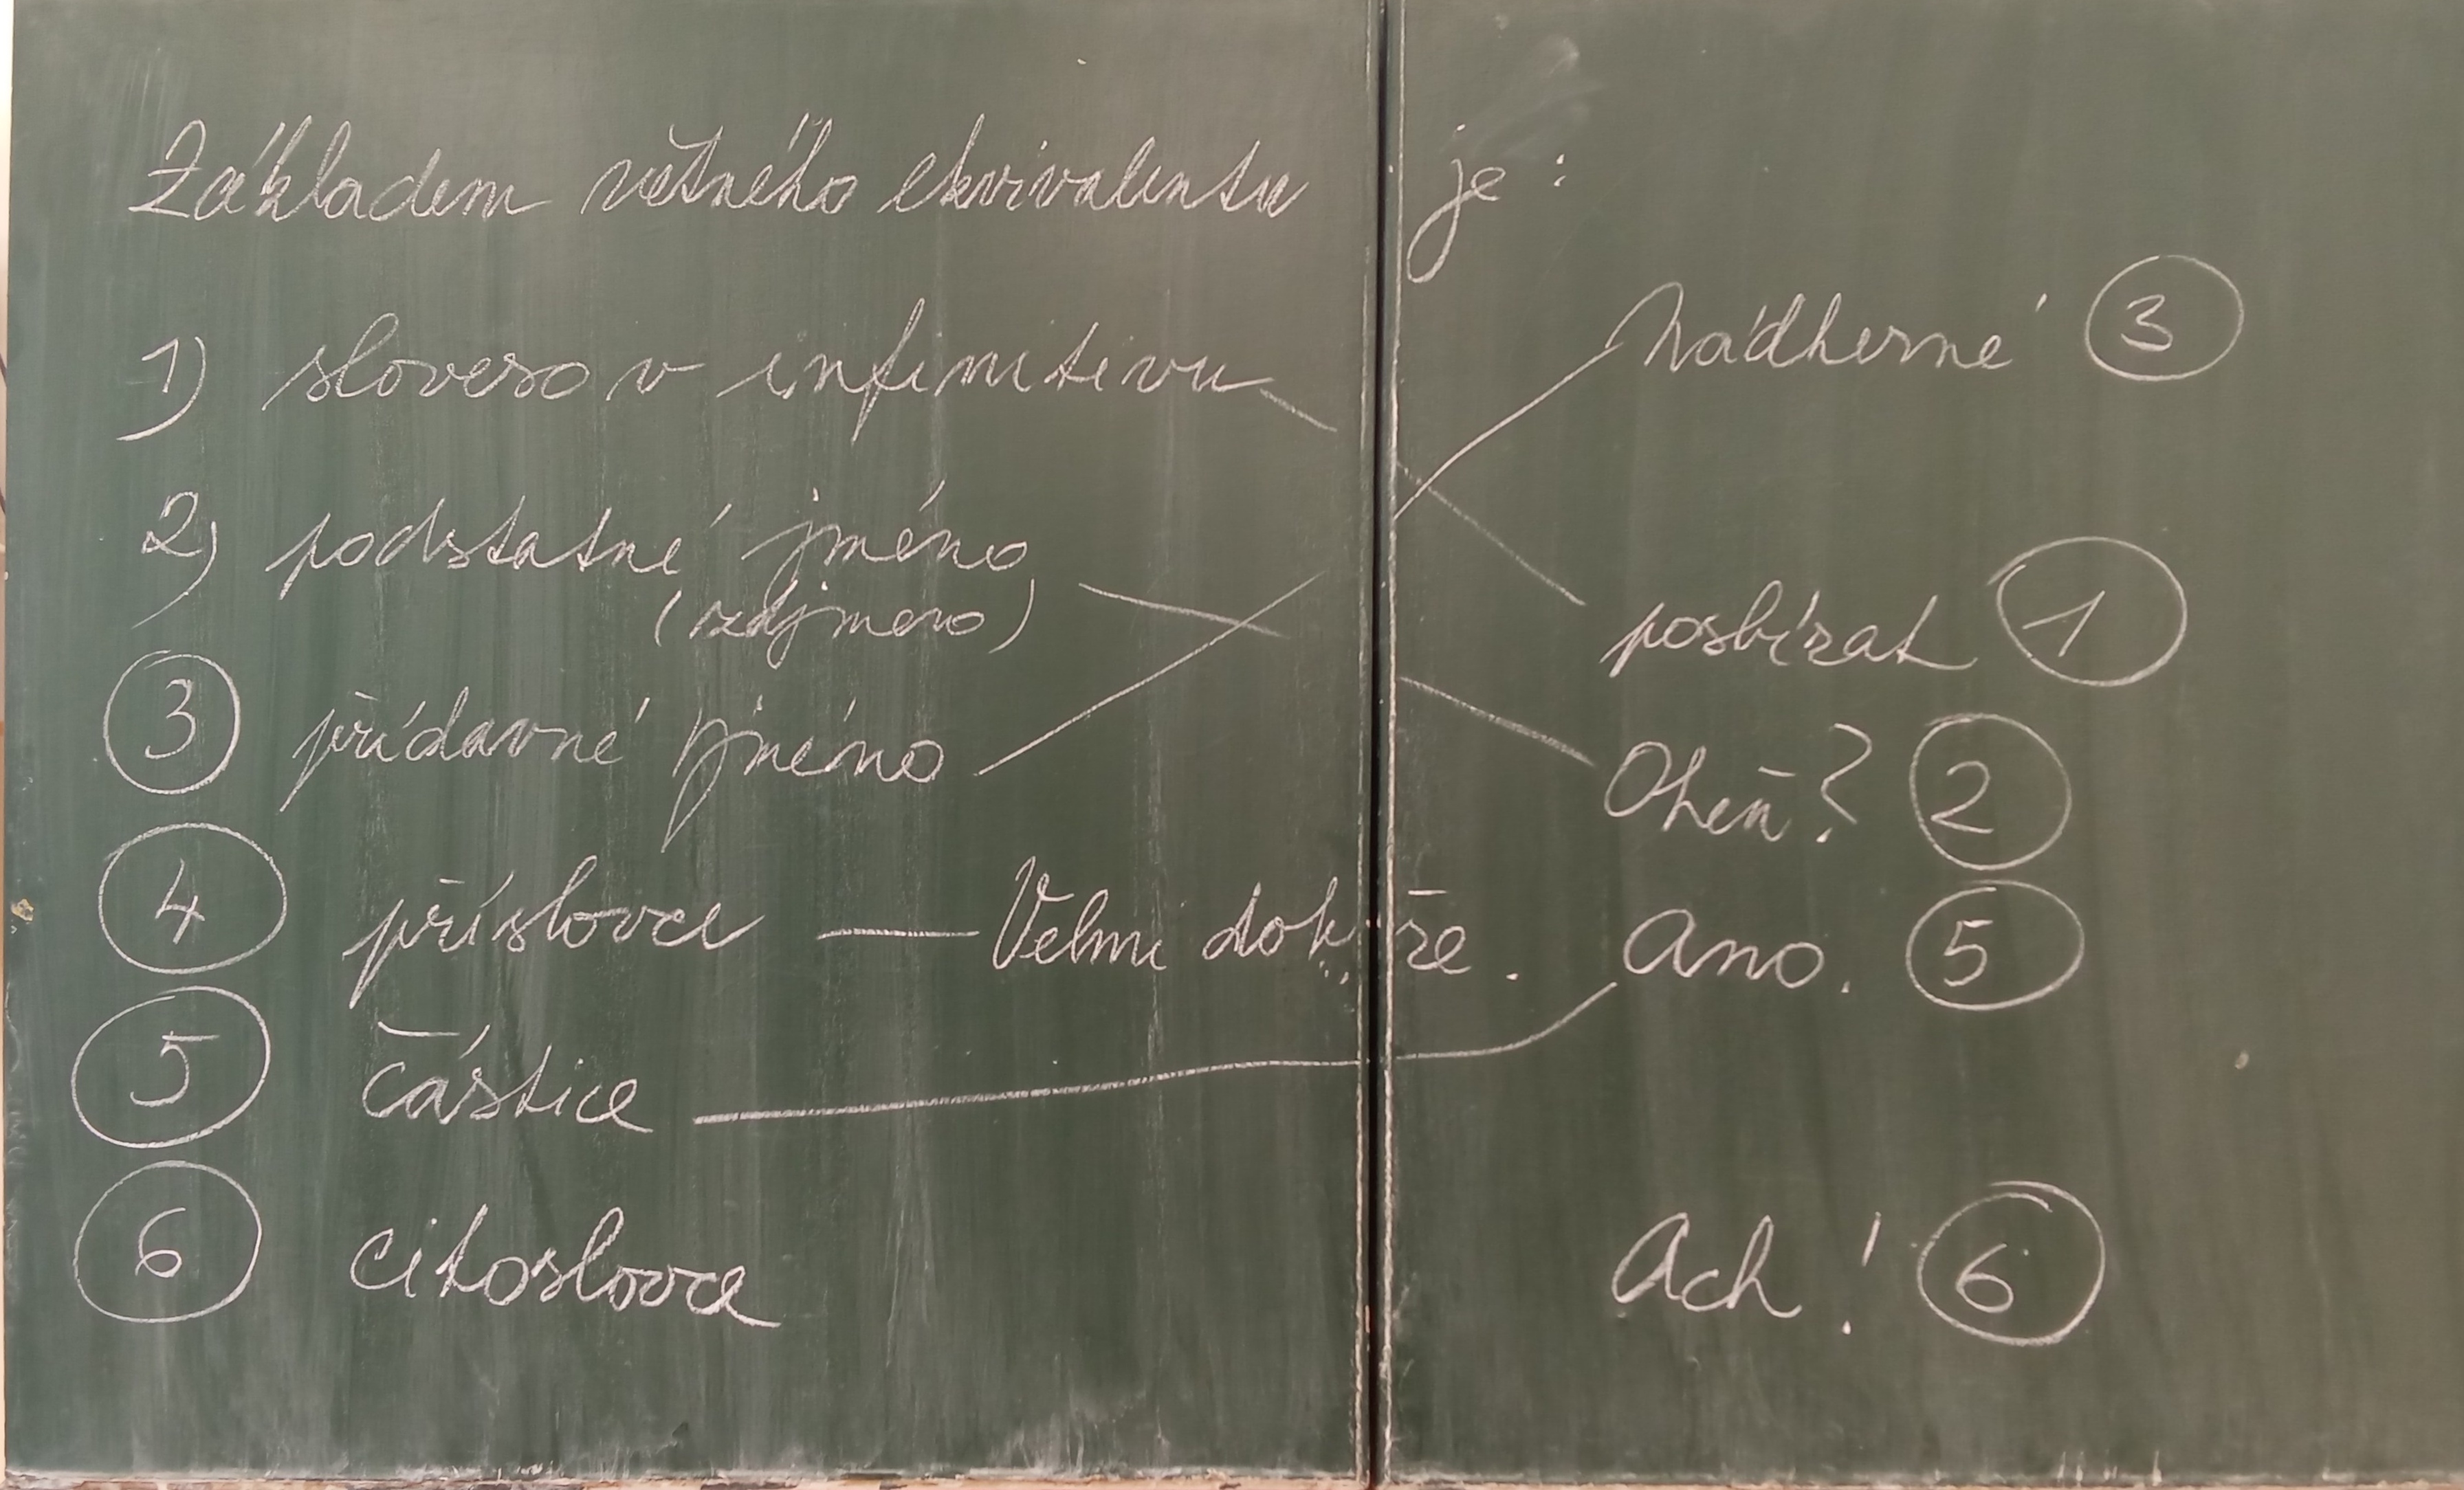 Základem větného ekvivalentu je:
1) sloveso v infinitivu
Nádherné 3
2) podstatné jméno
(zájmeno)
posbírat 1
3 přídavné jméno
Oheň? 2
4 příslovce — Velmi dobře.
Ano. 5
5 částice
6 citoslovce
Ach! 6